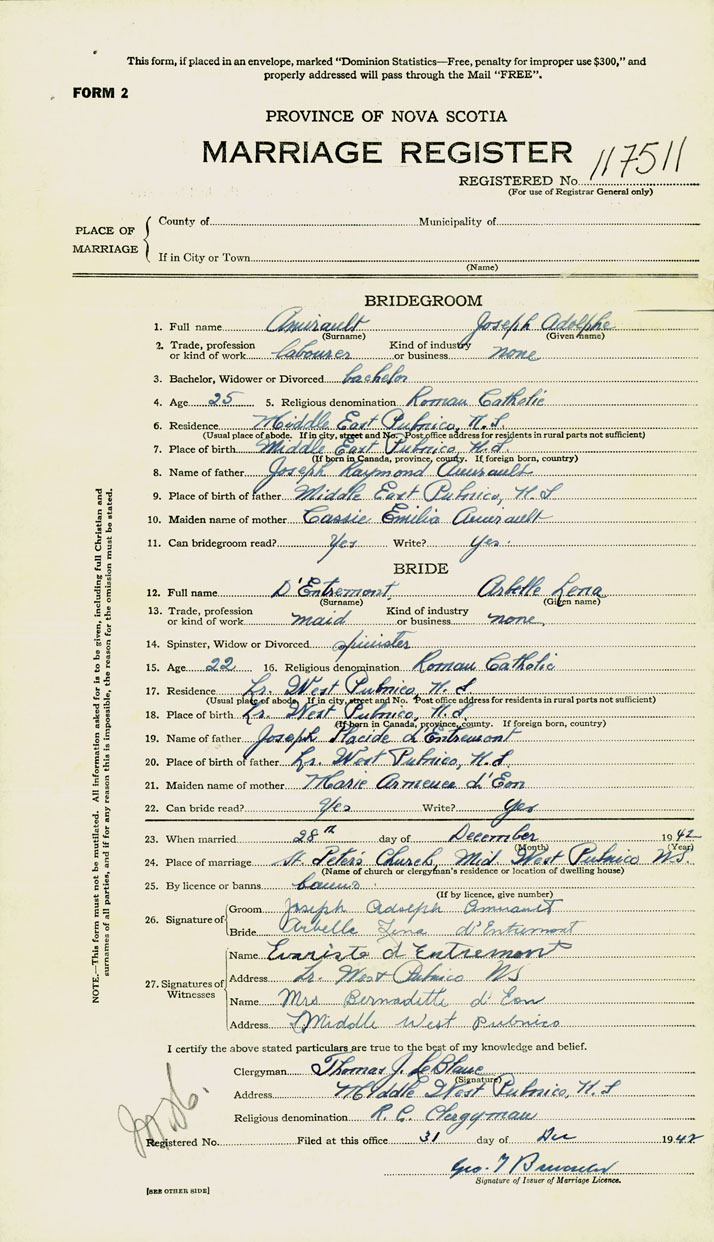 This form, if placed in an envelope, marked "Dominion Statistics—Free, penalty for improper use $300," and
properly addressed will pass through the Mail "FREE".
FORM 2
PROVINCE OF NOVA SCOTIA
MARRIAGE REGISTER
REGISTERED No. 117511
(For use of Registrar General only)
PLACE OF MARRIAGE
County of Municipality of
If in City or Town
(Name)
BRIDEGROOM
1. Full name Amirault Joseph Adolphe
(Surname) (Given name)
2. Trade, profession or kind of work labourer Kind of industry or business none
3. Bachelor, Widower or Divorced bachelor
4. Age 25 5. Religious denomination Roman Catholic
6. Residence Middle East Pubnico, N.S.
(Usual place of abode. If in city, street and No. Post office address for residents in rural parts not sufficient)
7. Place of birth Middle East Pubnico, N.S.
(If born in Canada, province, county. If foreign born, country)
8. Name of father Joseph Raymond Amirault
9. Place of birth of father Middle East Pubnico, N.S
10. Maiden name of mother Cassie Emilia Amirault
11. Can bridegroom read? Yes Write? Yes.
BRIDE
12. Full name D'Entremont Arbelle Lena
(Surname) (Given name)
13. Trade, profession or kind of work maid Kind of industry or business none
14. Spinster, Widow or Divorced spinister
15. Age 22 16. Religious denomination Roman Catholic
17. Residence Lr. West Pubnico, N.S
(Usual place of abode. If in city, street and No. Post office address for residents in rural parts not sufficient)
18. Place of birth Lr. West Pubnico, N.S.
(If born in Canada, province, county. If foreign born, country)
19. Name of father Joseph Placide d'Entremont
20. Place of birth of father Lr. West Pubnico, N.S.
21. Maiden name of mother Marie Armence d'Eon
22. Can bride read? Yes Write? Yes
23. When married 28th day of December 1942
(Month) (Year)
24. Place of marriage St. Peter's Church, Mid. West Pubnico N.S.
(Name of church or clergyman's residence or location of dwelling house)
25. By licence or banns banns
(If by licence, give number)
26. Signature of Groom Joseph Adolph Amirault
Bride Arbella Lina d'Entremont
27. Signatures of Witnesses Name Evariste d'Entremont
Address Lr. West Pubnico NS
Name Mrs Bernadette d'Eon
Address Middle West Pubnico
I certify the above stated particulars are true to the best of my knowledge and belief.
Clergyman Thomas J. LeBlanc
(Signature)
Address Middle West Pubnico, N.S
Religious denomination R.C. Clergyman
Registered No. Filed at this office 31 day of Dec 1942
Geo. T
Signature of Issuer of Marriage Licence.
[SEE OTHER SIDE]
NOTE.—This form must not be mutilated. All information asked for is to be given, including full Christian and
surnames of all parties, and if for any reason this is impossible, the reason for the omission must be stated.